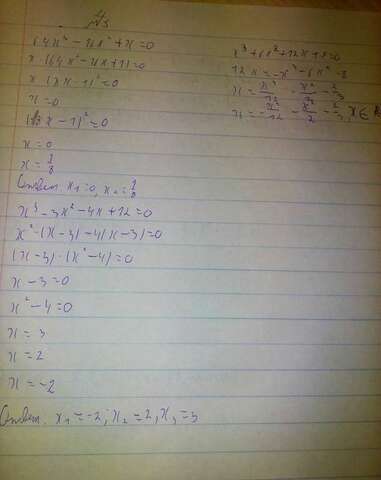 64x² - 16x² + x = 0
x (64x² - 16x + 1) = 0
x (8x - 1)² = 0
x = 0
(8x - 1)² = 0
x = 0
x = 1/8
Ответ. x₁ = 0, x₂ = 1/8
x³ - 3x² - 4x + 12 = 0
x² · (x - 3) - 4(x - 3) = 0
(x - 3) · (x² - 4) = 0
x - 3 = 0
x² - 4 = 0
x = 3
x = 2
x = -2
Ответ. x₁ = -2; x₂ = 2, x₃ = 3
x³ + 6x² + 12x + 8 = 0
12x = -x³ - 6x² - 8
x = -x³/12 - x²/2 - 2/3
x = -x³/12 - x²/2 - 2/3, x ∈